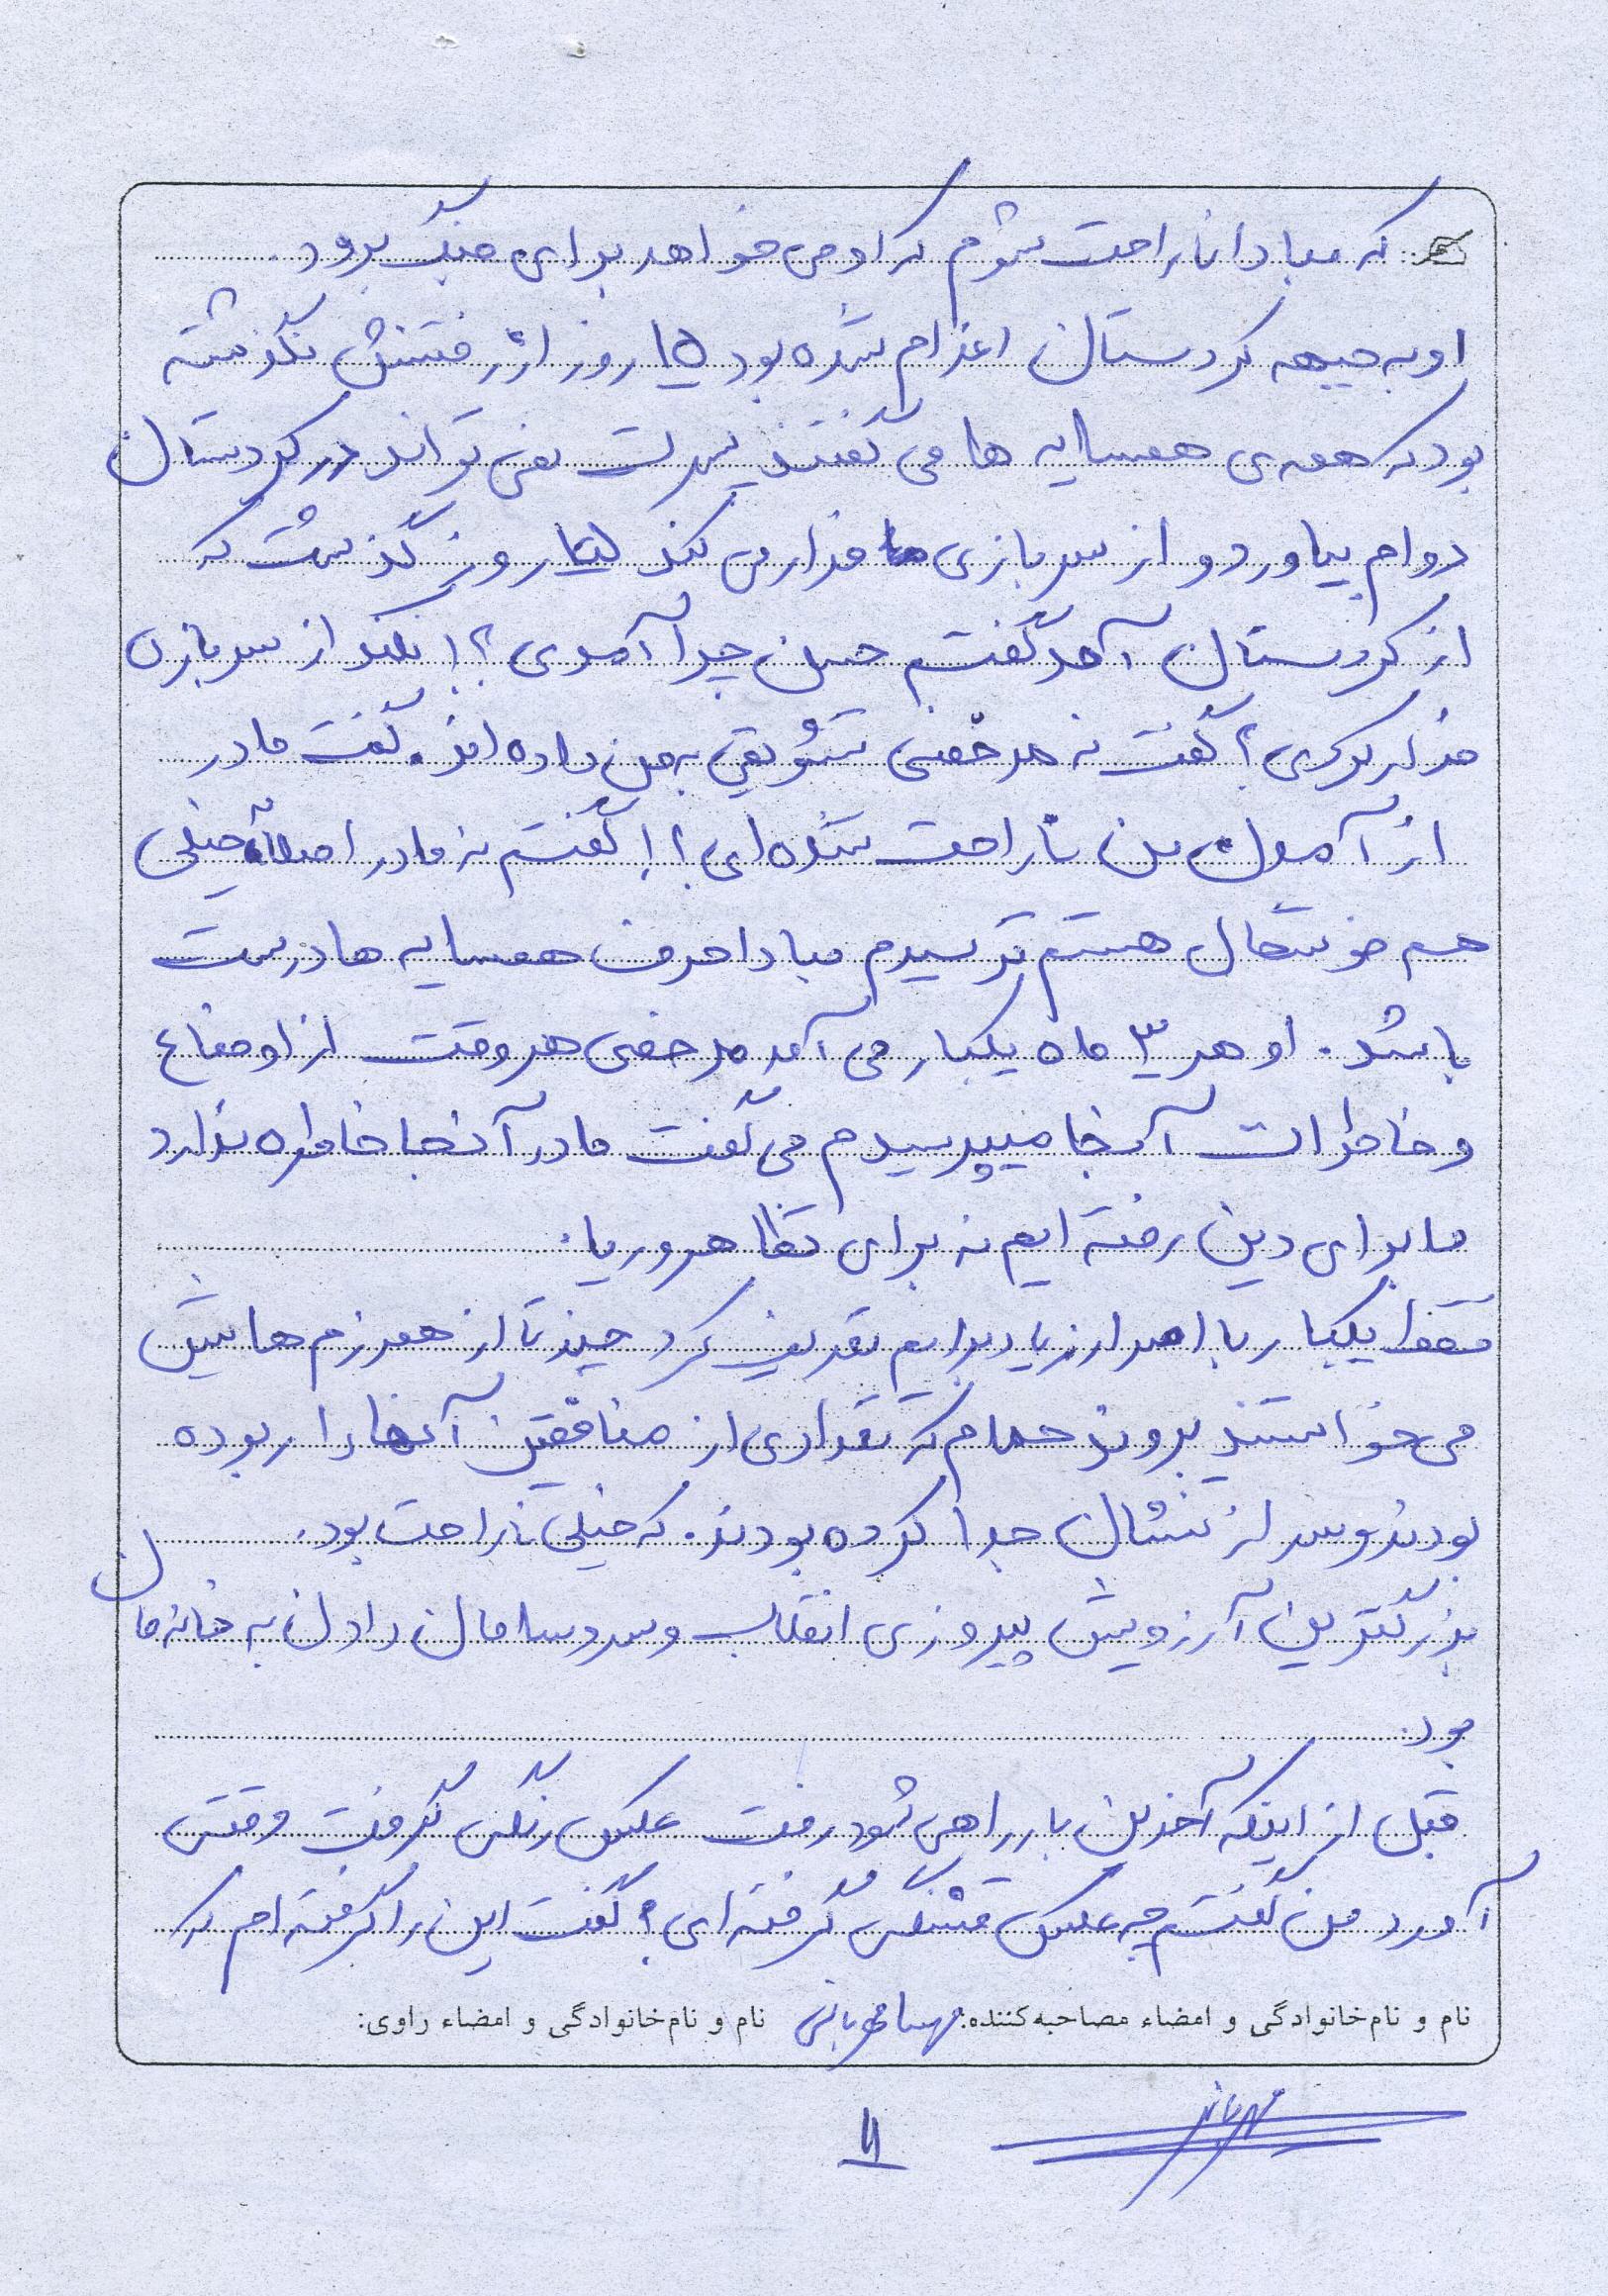 که مبادا ناراحت شوم که او می خواهد برای جنگ برود.
او به جبهه کردستان اعزام شده بود ۱۵ روز از رفتنش نگذشته
بود که همه ی همسایه ها می گفتند پسرت نمی تواند در کردستان
دوام بیاورد و از سربازی فرار می کند ۱۵ روز گذشت که
از کردستان آمد گفتم حسن چرا آمدی؟! نکند از سربازی
فرار کردی؟ گفت نه مرخصی تشویقی به من داده اند. گفت مادر
از آمدن من ناراحت شده ای؟! گفتم نه مادر اصلاً خیلی
هم خوشحال هستم ترسیدم مبادا حرف همسایه ها درست
باشد. او هر ۳ ماه یکبار می آمد مرخصی هر وقت از اوضاع
و خاطرات آنجا میپرسیدم می گفت مادر آنجا خاطره ندارد
ما برای دین رفته ایم نه برای تظاهر و ریا.
فقط یکبار با اصرار زیاد برایم تعریف کرد چند تا از همرزم هایش
می خواستند بروند حمام که تعدادی از منافقین آنها را ربوده
بودند و سر از تنشان جدا کرده بودند. که خیلی ناراحت بود.
بزرگترین آرزویش پیروزی انقلاب و سروسامان دادن به خانه مان
بود.
قبل از اینکه آخرین بار راهی شود رفت عکس رنگی گرفت وقتی
آورد من گفتم چه عکس قشنگی گرفته ای؟ گفت این را گرفته ام که
نام و نام‌خانوادگی و امضاء مصاحبه‌کننده: مهسا مهربانی نام و نام‌خانوادگی و امضاء راوی:
۱۱